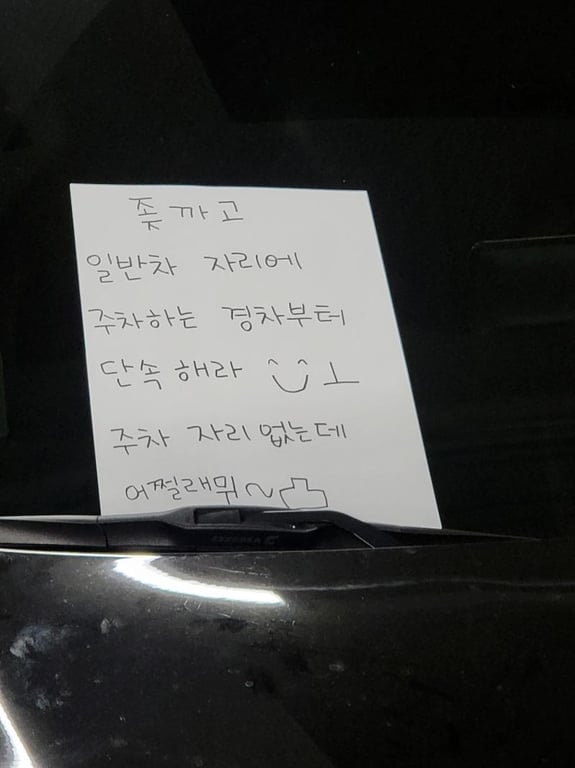 좆까고
일반차 자리에
주차하는 경차부터
단속해라 ^^ㅗ
주차 자리 없는데
어쩔래뭐~